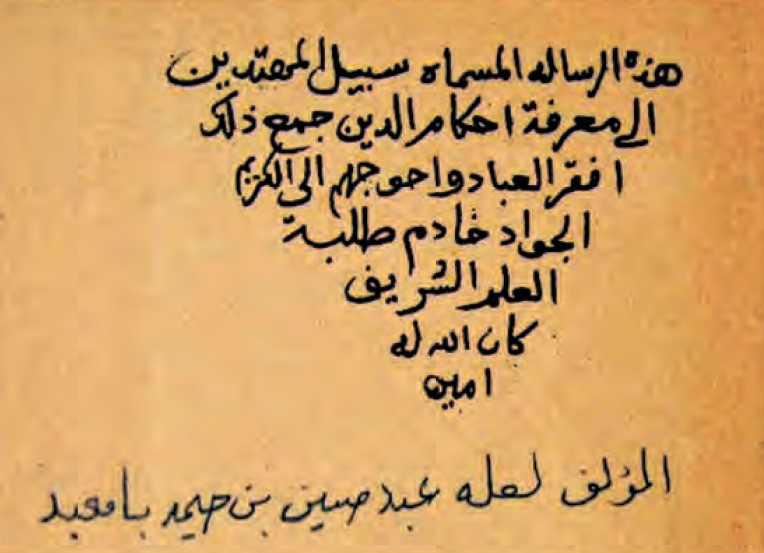 هذه الرساله المسماه سبيل المهتدين
الى معرفة احكام الدين جمع ذلك
افقر العباد واحوجهم الى الكريم
الجواد خادم طلبة
العلم الشريف
كان الله له
امين
المؤلف لعله عبد بن بامعبد